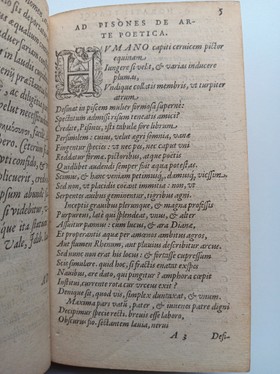 borem. Citeriu
ipsum abundi
si videbitur, v
Vale,
5
AD PISONES DE AR-
TE POETICA.
HVMANO capiti cervicem pictor
equinam
Iungere si velit, & varias inducere
plumas,
Vndique collatis membris, vt turpiter
atrum
Desinat in piscem mulier formosa supernè:
Spectatum admissi risum teneatis amici?
Credite, Pisones, isti tabulæ fore librum
Persimilem: cuius, velut ægri somnia, vanæ
Fingentur species: vt nec pes, nec caput vni
Reddatur formæ. pictoribus, atque poëtis
Quidlibet audendi semper fuit æqua potestas.
Scimus, & hanc veniam petimusq́, damusq́, vicissim:
Sed non, vt placidis coeant immitia: non, vt
Serpentes auibus geminentur, tigribus agni.
Inceptis grauibus plerunque, & magna professis
Purpureus, latè qui splendeat, vnus, & alter
Assuitur pannus: cum lucus, & ara Dianæ,
Et properantis aquæ per amœnos ambitus agros,
Aut flumen Rhenum, aut pluuius describitur arcus.
Sed nunc non erat his locus: & fortasse cupressum
Scis simulare. quid hoc, si fractis enatat exspes
Nauibus, ære dato, qui pingitur? amphora cœpit
Institui, currente rota cur vrceus exit?
Denique sit, quod vis, simplex duntaxat, & vnum.
Maxima pars vatū, pater, & iuuenes patre digni
Decipimur specie recti. breuis esse laboro,
Obscurus fio. sectantem leuia, nerui
A 3
Defi-